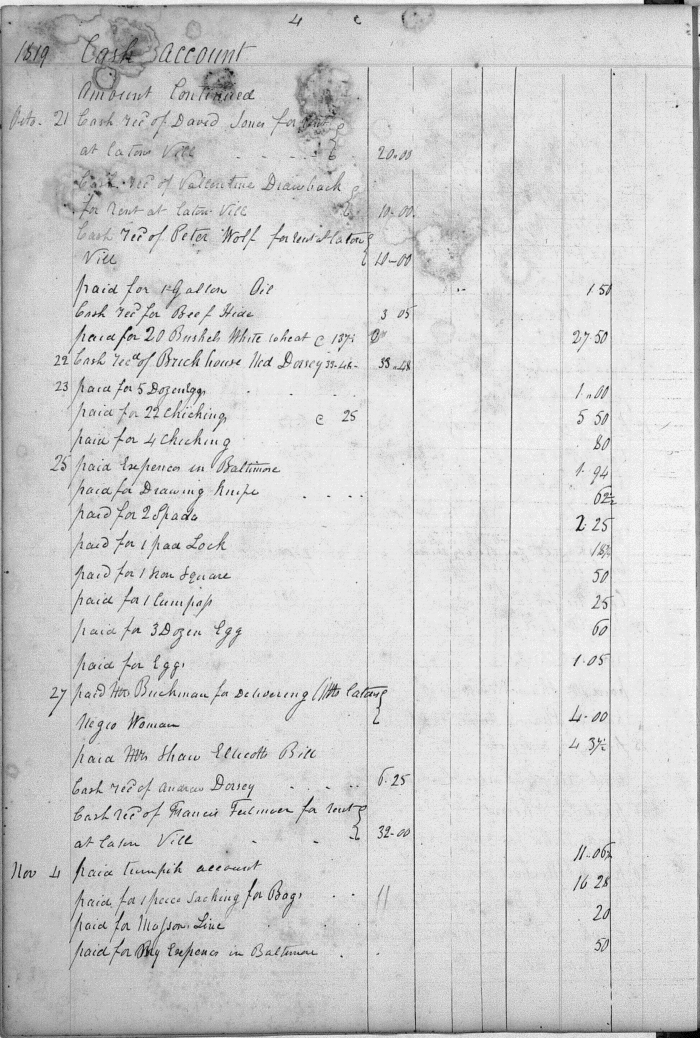 4
1819 Cash account
Amount Continued
Octo. 21 Cash recd of David Jones for rent
at Caton Vill 20.00
Cash recd of Valentine Drawback
for rent at Caton Vill 10-00
Cash recd of Peter Wolf for rent at Caton
Vill 10-00
paid for 1 Gallon Oil 1.50
Cash recd for Beef Hide 3 05
paid for 20 Bushels White wheat @ 137½ 27.50
22 Cash recd of Brickhouse Ned Dorsey 33.48 33.48
23 paid for 5 Dozen Eggs 1.00
paid for 22 Chicking @ 25 5 50
paid for 4 Chicking 80
25 paid Expences in Baltimore 1.94
paid for Drawing Knife 62½
paid for 2 Spads 2.25
paid for 1 pad Lock 18¾
paid for 1 Iron Square 50
paid for 1 Cumpass 25
paid for 3 Dozen Egg 60
paid for Eggs 1.05
27 paid Buchman for Delivering Caton
Negro Woman 4-00
paid Mrs Shaw Ellicotts Bill 4 37½
Cash recd of Andrew Dorsey 6.25
Cash recd of Francis for rent
at Caton Vill 32-00
Nov 4 paid turnpik account 11-06¼
paid for 1 peece Sacking for Bags 16 28
paid for Masson Line 20
paid for My Expences in Baltimore 50